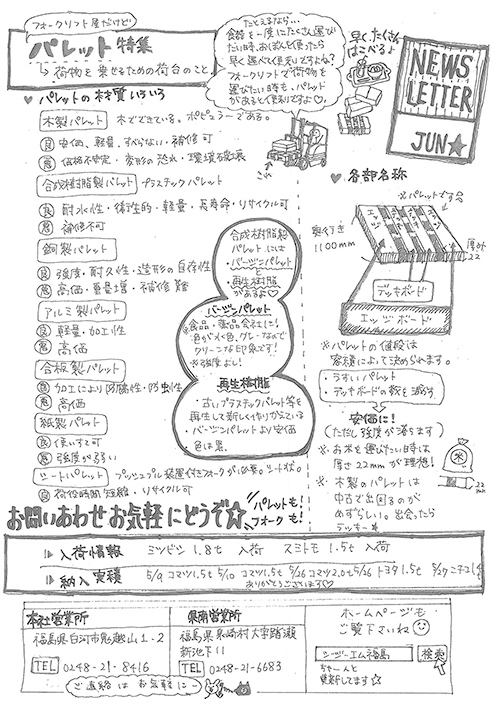 フォークリフト屋だけど
パレット特集
→荷物を乗せるための荷台のこと
たとえるなら…
食器を一度にたくさん運び
たい時、おぼんを使ったら
早く運べて便利ですよね?
フォークリフトで荷物を
運びたい時も、パレット
があると便利ですよ♡
早くたくさん
はこべる♪
NEWS
LETTER
JUN★
♥パレットの材質いろいろ
木製パレット 木でできている。ポピュラーである。
良 安価、軽量、すべらない・補修可
悪 価格不安定・変形の恐れ・環境破壊
合成樹脂製パレット プラスチックパレット
良 耐水性・衛生的・軽量・長寿命・リサイクル可
悪 補修不可
鋼製パレット
良 強度・耐久性・造形の自在性
悪 高価・重量増・補修難
アルミ製パレット
良 軽量・加工性
悪 高価
合板製パレット
良 加工により防腐性・防虫性
悪 高価
紙製パレット
良 使いすて可
悪 強度が弱い
シートパレット プッシュプル装置付きフォークが必要。シート状。
良 荷役時間短縮・リサイクル可
合成樹脂製
パレットには
・バージンパレット
と
・再生樹脂
があるよ♡
バージンパレット
・食品・薬品会社に!
・色が水色、グレーなので
クリーンな印象です!
※強度よし!
再生樹脂
・古いプラスチックパレット等を
再生して新しく作りかえている
・バージンパレットより安価
・色は黒
♥各部名称
※パレットです
エッジ
奥行き
1100mm
厚み
22
デッキボード
エッジボード
※パレットの値段は
容積によって決められます。
・うすいパレット
・デッキボードの数を減らす
安価に!
(ただし強度が落ちます)
※お米を運びたい時は
厚さ22mmが理想!
米
22mm
※木製のパレットは
中古で出回るのが
めずらしい。出会ったら
ラッキー★
お問いあわせお気軽にどうぞ☆
パレットも!
フォークも!
入荷情報 ミツビシ 1.8t 入荷 スミトモ 1.5t 入荷
納入実績 5/9 コマツ1.5t 5/10 コマツ1.5t 5/26コマツ2.0t 5/26 トヨタ1.5t 5/27 ニチユ
ありがとうございます♡
本社営業所
福島県白河市鬼越山1-2
TEL 0248-21-8416
県南営業所
福島県泉崎村大字踏瀬
新池下11
TEL 0248-21-6683
ご連絡は お気軽に
ホームページも
ご覧下さいね
シーゾーエム福島 検索
ちゃーんと
更新してます☆